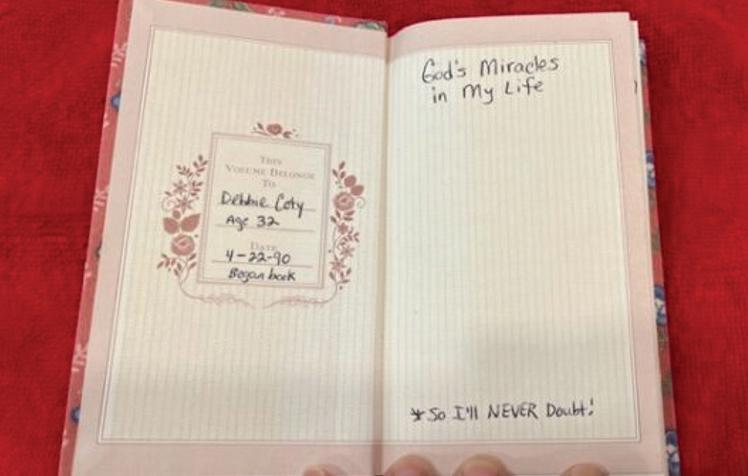 THIS
VOLUME BELONGS
TO
Debbie Coty
Age 32
DATE
4-22-90
Began book
God's Miracles
in My Life
* So I'll NEVER Doubt!